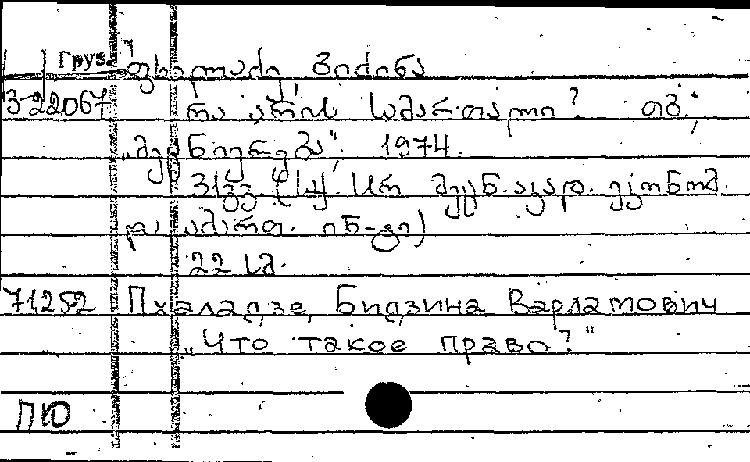 Груз.
ფხალაძე, ბიძინა
3-22067 რა არის სამართალი? თბ.,
„მეცნიერება", 1974.
31გვ. სსრ მეცნ. აკად. ეკონომ.
და სამართ. ინ-ტი)
22 სმ.
71252 Пхаладзе, Бидзина Варламович
„Что такое право?"
ПЮ